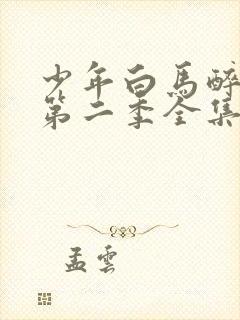 少年白馬醉
第二季全集
孟雲